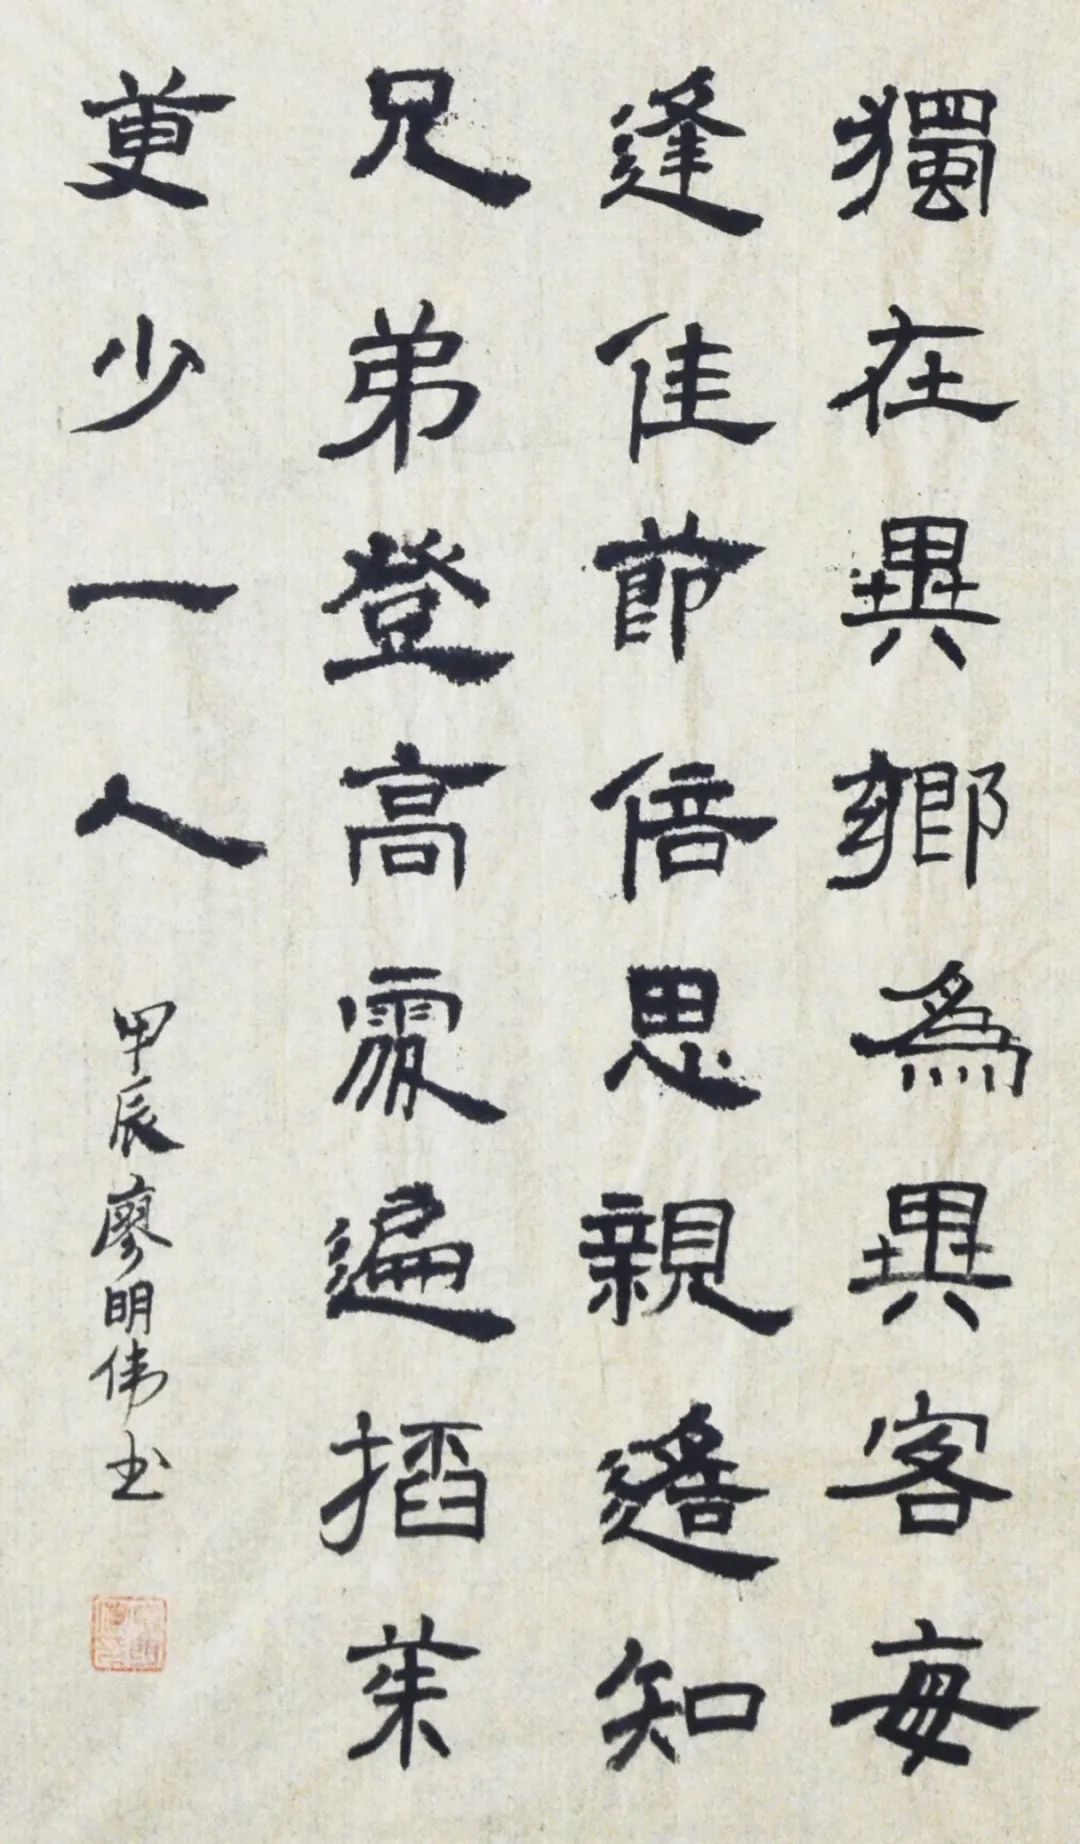 獨在異鄉爲異客每
逢佳節倍思親遙知
兄弟登高處遍插茱
萸少一人
甲辰廖明伟书